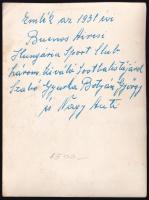 Emlék az 1931 évi
Buenos Airesi
Hungária Sport Club
három kiváló footballistájáról
Szabó Gyurka, Bólyai György
és Nagy Anti
1500.-